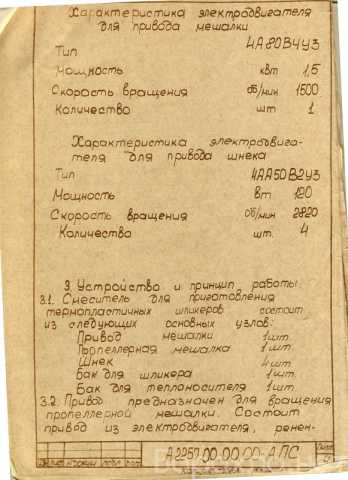 Характеристика электродвигателя
для привода мешалки
Тип 4А80В4У3
Мощность квт 1,5
Скорость вращения об/мин 1500
Количество шт 1
Характеристика электродвига-
теля для привода шнека
Тип 4АА50В2У3
Мощность вт 120
Скорость вращения об/мин 2820
Количества шт. 4
3. Устройство и принцип работы
3.1. Смеситель для приготовления
термопластичных шликеров состоит
из следующих основных узлов:
Привод мешалки 1шт.
Пропеллерная мешалка 1шт.
Шнек 4шт
Бак для шликера 1шт.
Бак для теплоносителя 1шт.
3.2. Привод предназначен для вращения
пропеллерной мешалки. Состоит
привод из электродвигателя, ремен-
А2257.00.00.00.АПС